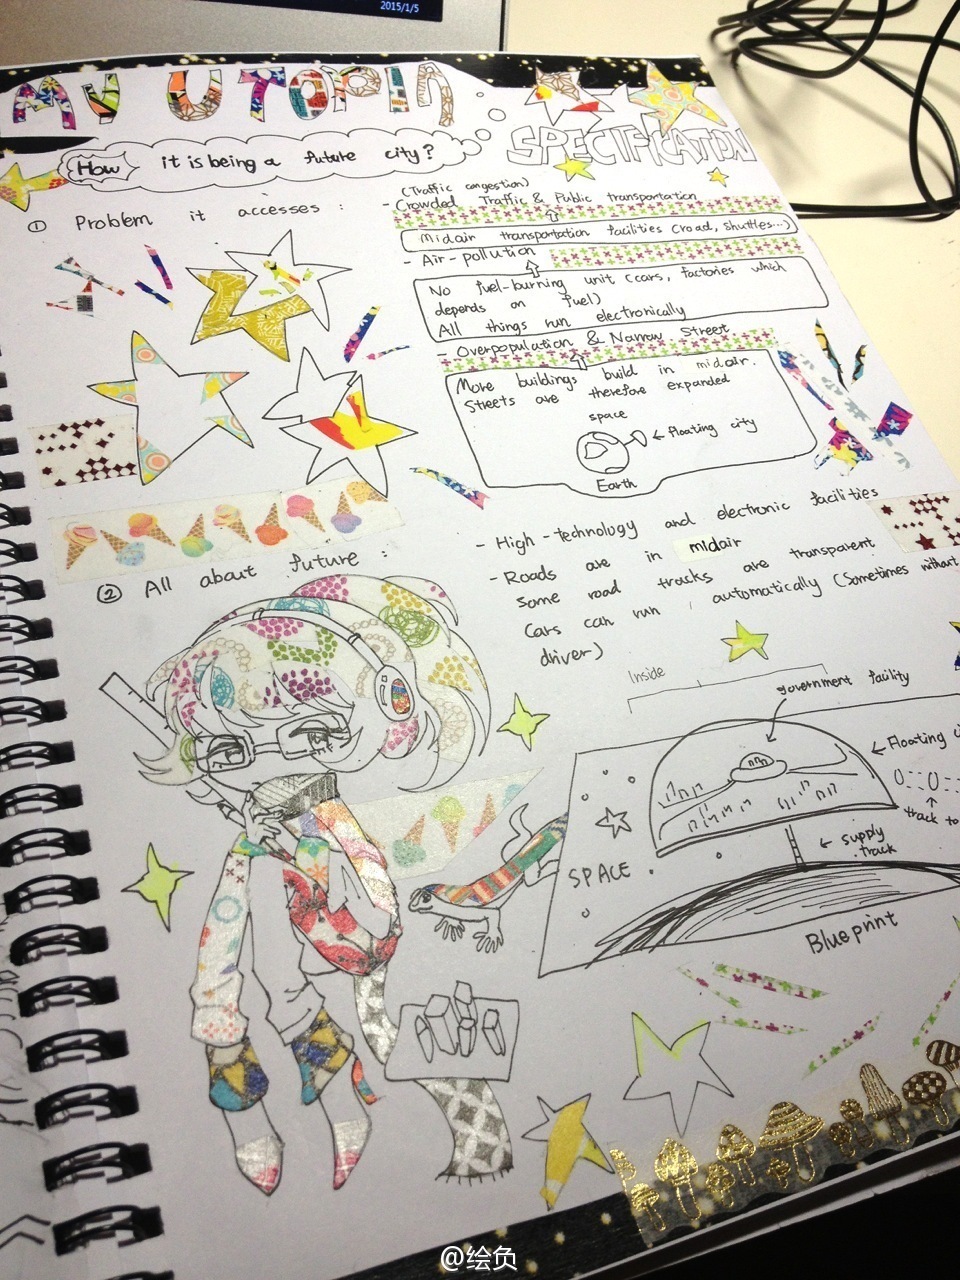 2015/1/5
MY UTOPIA
SPECIFICATION
How it is being a future city?
① Problem it accesses :
(Traffic congestion)
- Crowded Traffic & Public transportation
Midair transportation facilities (road, shuttles...)
- Air-pollution
No fuel-burning unit (cars, factories which
depends on fuel)
All things run electronically
- Overpopulation & Narrow Street
More buildings build in midair.
Streets are therefore expanded
space
← floating city
Earth
② All about future :
- High-technology and electronic facilities
- Roads are in midair
Some road tracks are transparent
Cars can run automatically (Sometimes without
driver)
Inside
government facility
← Floating
track to
← supply
track
SPACE
Blueprint
@绘负